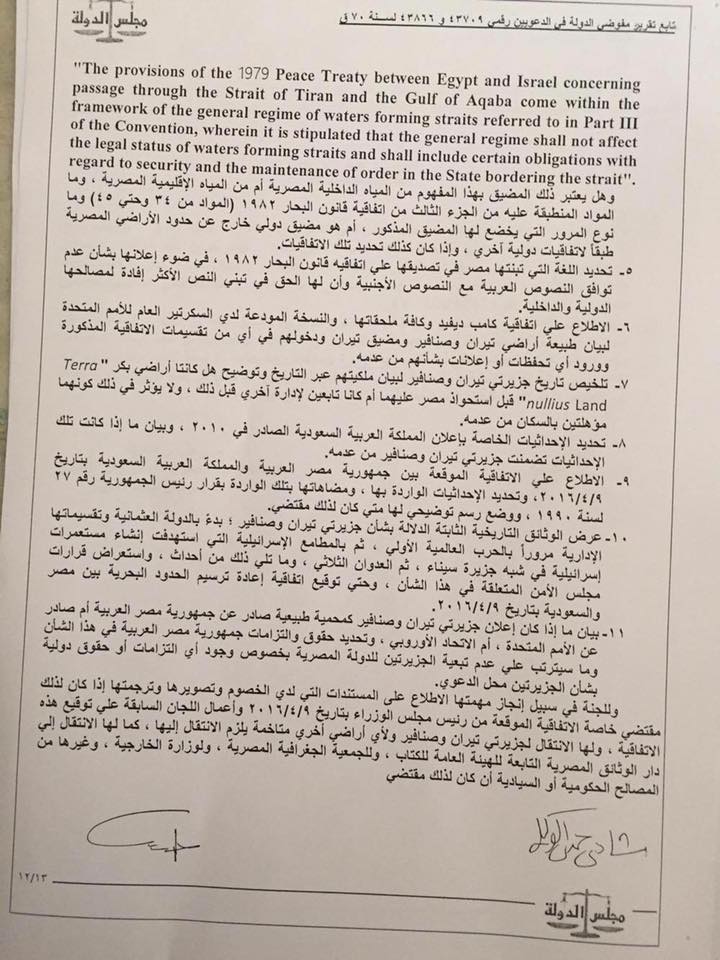 مجلس الدولة
تابع تقرير مفوضي الدولة في الدعويين رقمي ٤٣٧٠٩ و ٤٣٨٦٦ لسنة ٧٠ ق
"The provisions of the 1979 Peace Treaty between Egypt and Israel concerning
passage through the Strait of Tiran and the Gulf of Aqaba come within the
framework of the general regime of waters forming straits referred to in Part III
of the Convention, wherein it is stipulated that the general regime shall not affect
the legal status of waters forming straits and shall include certain obligations with
regard to security and the maintenance of order in the State bordering the strait".
وهل يعتبر ذلك المضيق بهذا المفهوم من المياه الداخلية المصرية أم من المياه الإقليمية المصرية ، وما
المواد المنطبقة عليه من الجزء الثالث من اتفاقية قانون البحار ١٩٨٢ (المواد من ٣٤ وحتي ٤٥) وما
نوع المرور التي يخضع لها المضيق المذكور ، أم هو مضيق دولي خارج عن حدود الأراضي المصرية
طبقاً لاتفاقيات دولية آخري ، وإذا كان كذلك تحديد تلك الاتفاقيات.
٥- تحديد اللغة التي تبنتها مصر في تصديقها علي اتفاقيه قانون البحار ١٩٨٢ ، في ضوء إعلانها بشأن عدم
توافق النصوص العربية مع النصوص الأجنبية وأن لها الحق في تبني النص الأكثر إفادة لمصالحها
الدولية والداخلية.
٦- الاطلاع علي اتفاقية كامب ديفيد وكافة ملحقاتها ، والنسخة المودعة لدي السكرتير العام للأمم المتحدة
لبيان طبيعة أراضي تيران وصنافير ومضيق تيران ودخولهم في أي من تقسيمات الاتفاقية المذكورة
وورود أي تحفظات أو إعلانات بشأنهم من عدمه.
٧- تلخيص تاريخ جزيرتي تيران وصنافير لبيان ملكيتهم عبر التاريخ وتوضيح هل كانتا أراضي بكر " Terra
nullius Land" قبل استحواذ مصر عليهما أم كانا تابعين لإدارة آخري قبل ذلك ، ولا يؤثر في ذلك كونهما
مؤهلتين بالسكان من عدمه.
٨- تحديد الإحداثيات الخاصة بإعلان المملكة العربية السعودية الصادر في ٢٠١٠ ، وبيان ما إذا كانت تلك
الإحداثيات تضمنت جزيرتي تيران وصنافير من عدمه.
٩- الاطلاع علي الاتفاقية الموقعة بين جمهورية مصر العربية والمملكة العربية السعودية بتاريخ
٢٠١٦/٤/٩، وتحديد الإحداثيات الواردة بها ، ومضاهاتها بتلك الواردة بقرار رئيس الجمهورية رقم ٢٧
لسنة ١٩٩٠ ، ووضع رسم توضيحي لها متي كان لذلك مقتضي.
١٠- عرض الوثائق التاريخية الثابتة الدلالة بشأن جزيرتي تيران وصنافير ؛ بدءً بالدولة العثمانية وتقسيماتها
الإدارية مروراً بالحرب العالمية الأولي ، ثم بالمطامع الإسرائيلية التي استهدفت إنشاء مستعمرات
إسرائيلية في شبه جزيرة سيناء ، ثم العدوان الثلاثي ، وما تلي ذلك من أحداث ، واستعراض قرارات
مجلس الأمن المتعلقة في هذا الشأن ، وحتي توقيع اتفاقية إعادة ترسيم الحدود البحرية بين مصر
والسعودية بتاريخ ٢٠١٦/٤/٩.
١١- بيان ما إذا كان إعلان جزيرتي تيران وصنافير كمحمية طبيعية صادر عن جمهورية مصر العربية أم صادر
عن الأمم المتحدة ، أم الاتحاد الأوروبي ، وتحديد حقوق والتزامات جمهورية مصر العربية في هذا الشأن
وما سيترتب علي عدم تبعية الجزيرتين للدولة المصرية بخصوص وجود أي التزامات أو حقوق دولية
بشأن الجزيرتين محل الدعوي.
وللجنة في سبيل إنجاز مهمتها الاطلاع على المستندات التي لدي الخصوم وتصويرها وترجمتها إذا كان لذلك
مقتضي خاصة الاتفاقية الموقعة من رئيس مجلس الوزراء بتاريخ ٢٠١٦/٤/٩ وأعمال اللجان السابقة علي توقيع هذه
الاتفاقية ، ولها الانتقال لجزيرتي تيران وصنافير ولأي أراضي أخري متاخمة يلزم الانتقال إليها ، كما لها الانتقال إلي
دار الوثائق المصرية التابعة للهيئة العامة للكتاب ، وللجمعية الجغرافية المصرية ، ولوزارة الخارجية ، وغيرها من
المصالح الحكومية أو السيادية أن كان لذلك مقتضي
١٢/١٣
مجلس الدولة